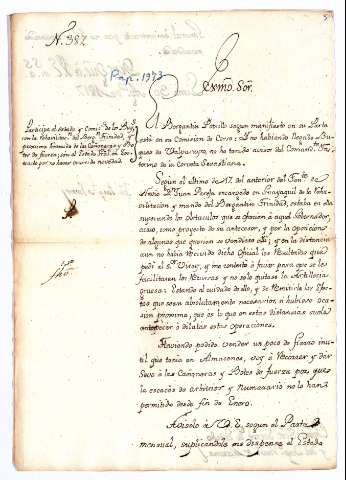 N. 387
Exmo. Sor.
Participa el estado y Comis.n de los Buques
Trinidad, y
de las Cañoneras y
Botes de fuerza; con el Estado
por no haver ocurrido novedad
El Bergantin Potrillo segun manifiesto en su Parte
está en su Comision de Corso; y no habiendo llegado
Buques de Valparayso, no ha tenido aviso del Comand.te In-
terino de la Corveta Sebastiana.
Según el último de 17. del anterior del Ten.te de
Navio D. Juan Pareja encargado en Guayaquil de la habi-
litacion y mando del Bergantin Trinidad, estaba en ella
superando los obstaculos que se ofrecian à aquel Governador,
acaso, como proyecto de su antecesor, y por la oposicion
de algunos que querian se vendiese alli; y en la distancia
aun no habia recivido dicho Oficial los resultados que
pedi al S.or Virrey, y me contestó à favor para que se les
facilitasen los recursos y no se le quitase la Artilleria
gruesa: Estando al cuidado de ello, y de remitirle los efec-
tos que sean absolutamente necesarios si hubiese oca-
sion proxima; que es lo que en estas distancias suele
entorpecer ò dilatar estas operaciones.
Haviendo podido vender un poco de fierro inu-
til que tenia en Almacenes, voy à recorrer y dar
Sevo à las Cañoneras y Botes de fuerza por que
la escasés de arbitrios y numerario no lo han
permitido desde fin de Enero.
Aviselo à V. E. segun el Parte
mensual, suplicandole me dispense el Estado